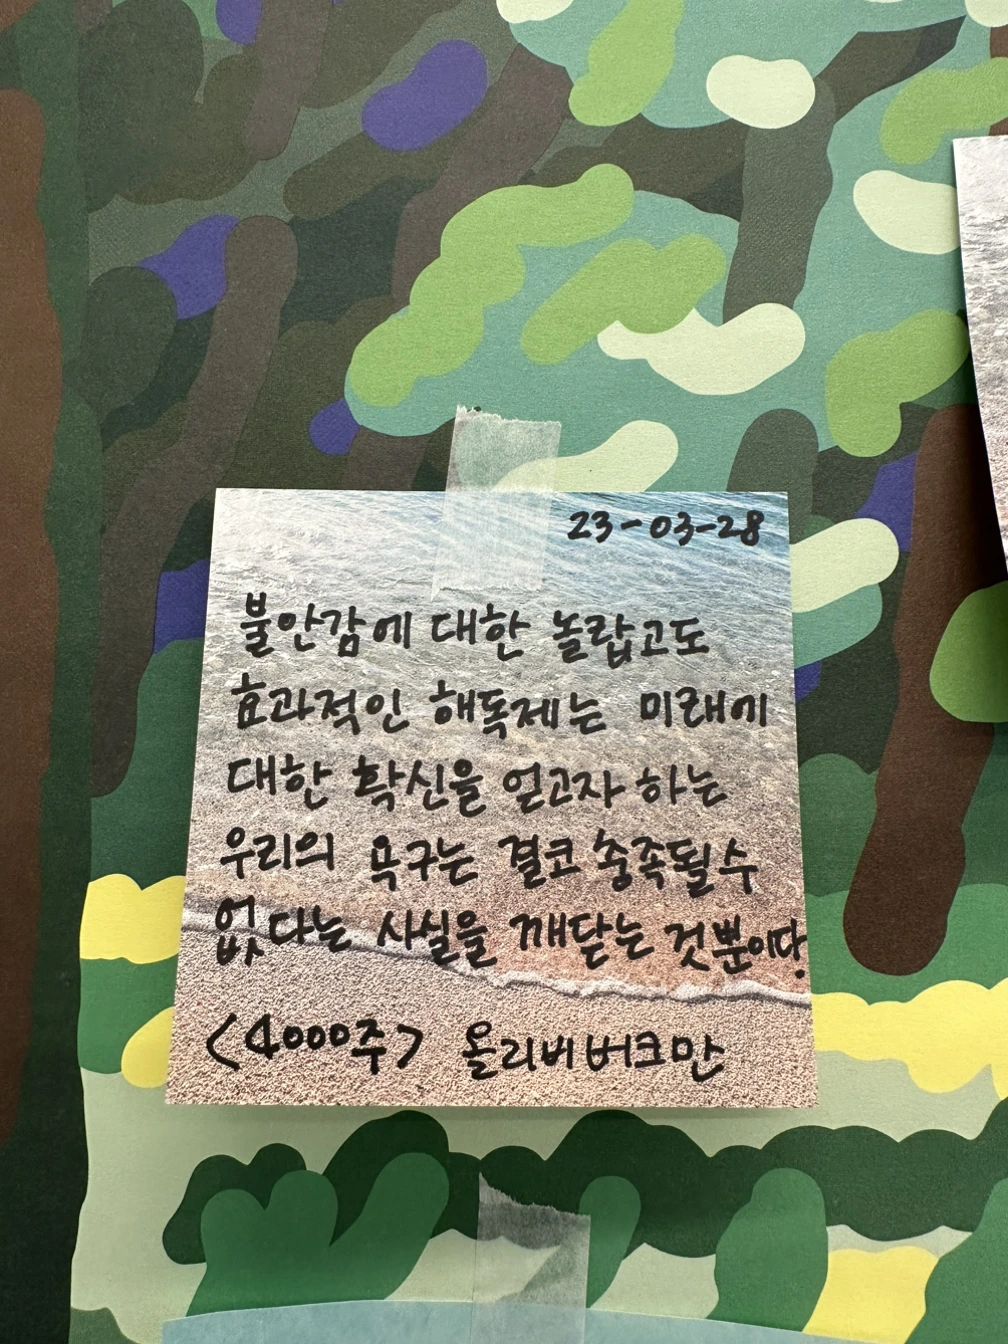 23-03-28
불안감에 대한 놀랍고도
효과적인 해독제는 미래에
대한 확신을 얻고자 하는
우리의 욕구는 결코 충족될수
없다는 사실을 깨닫는 것뿐이다.
<4000주> 올리버버크만